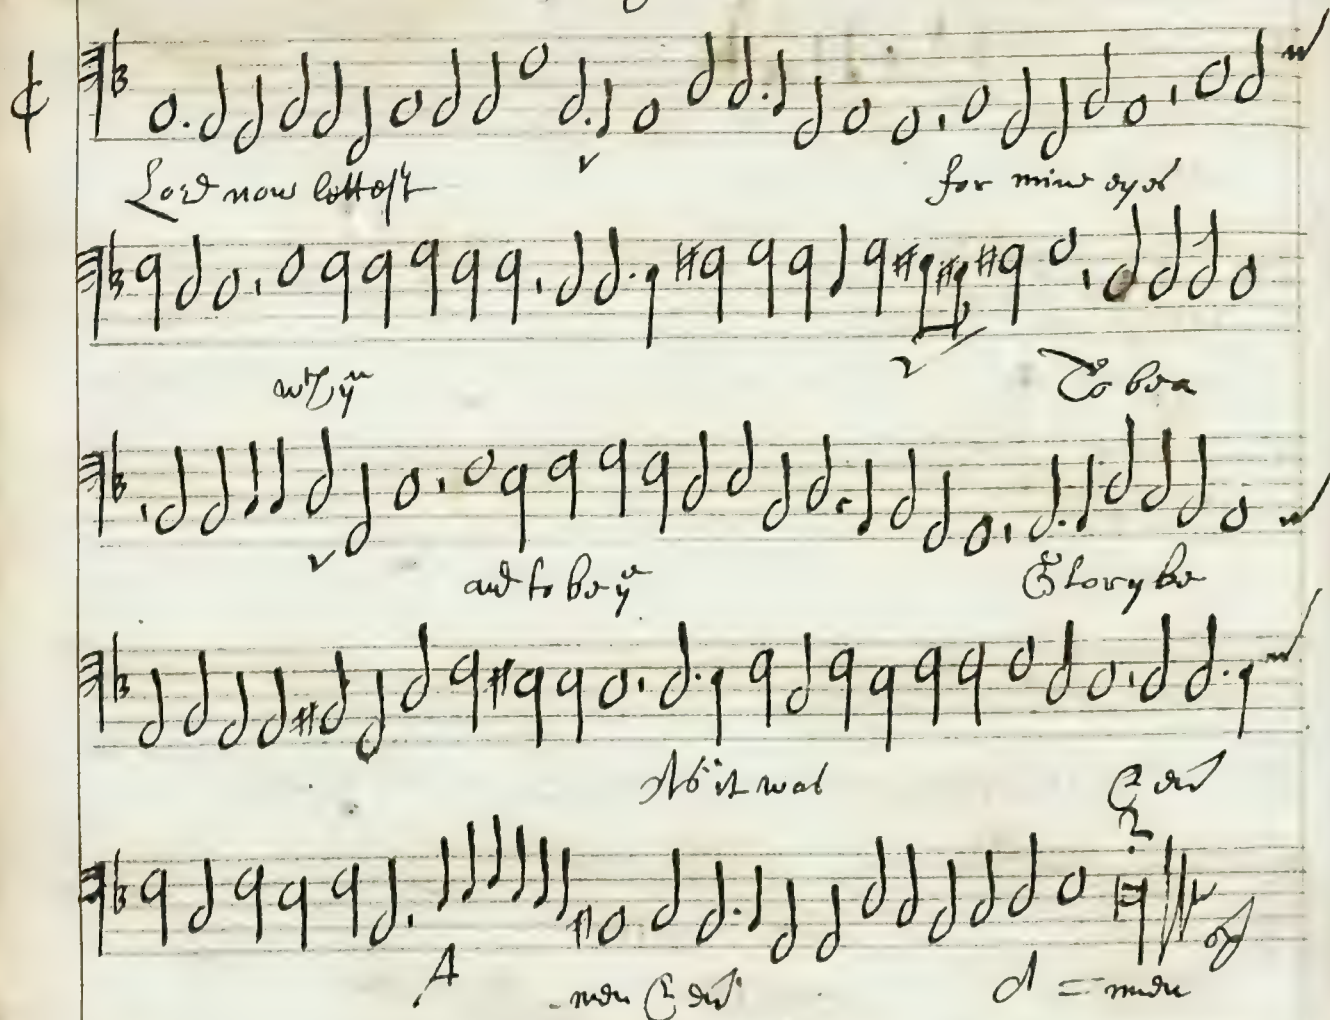 Lord now lettest for mine eyes
wch yu To bee a
and to be ye Glory be
As it was
A men A men